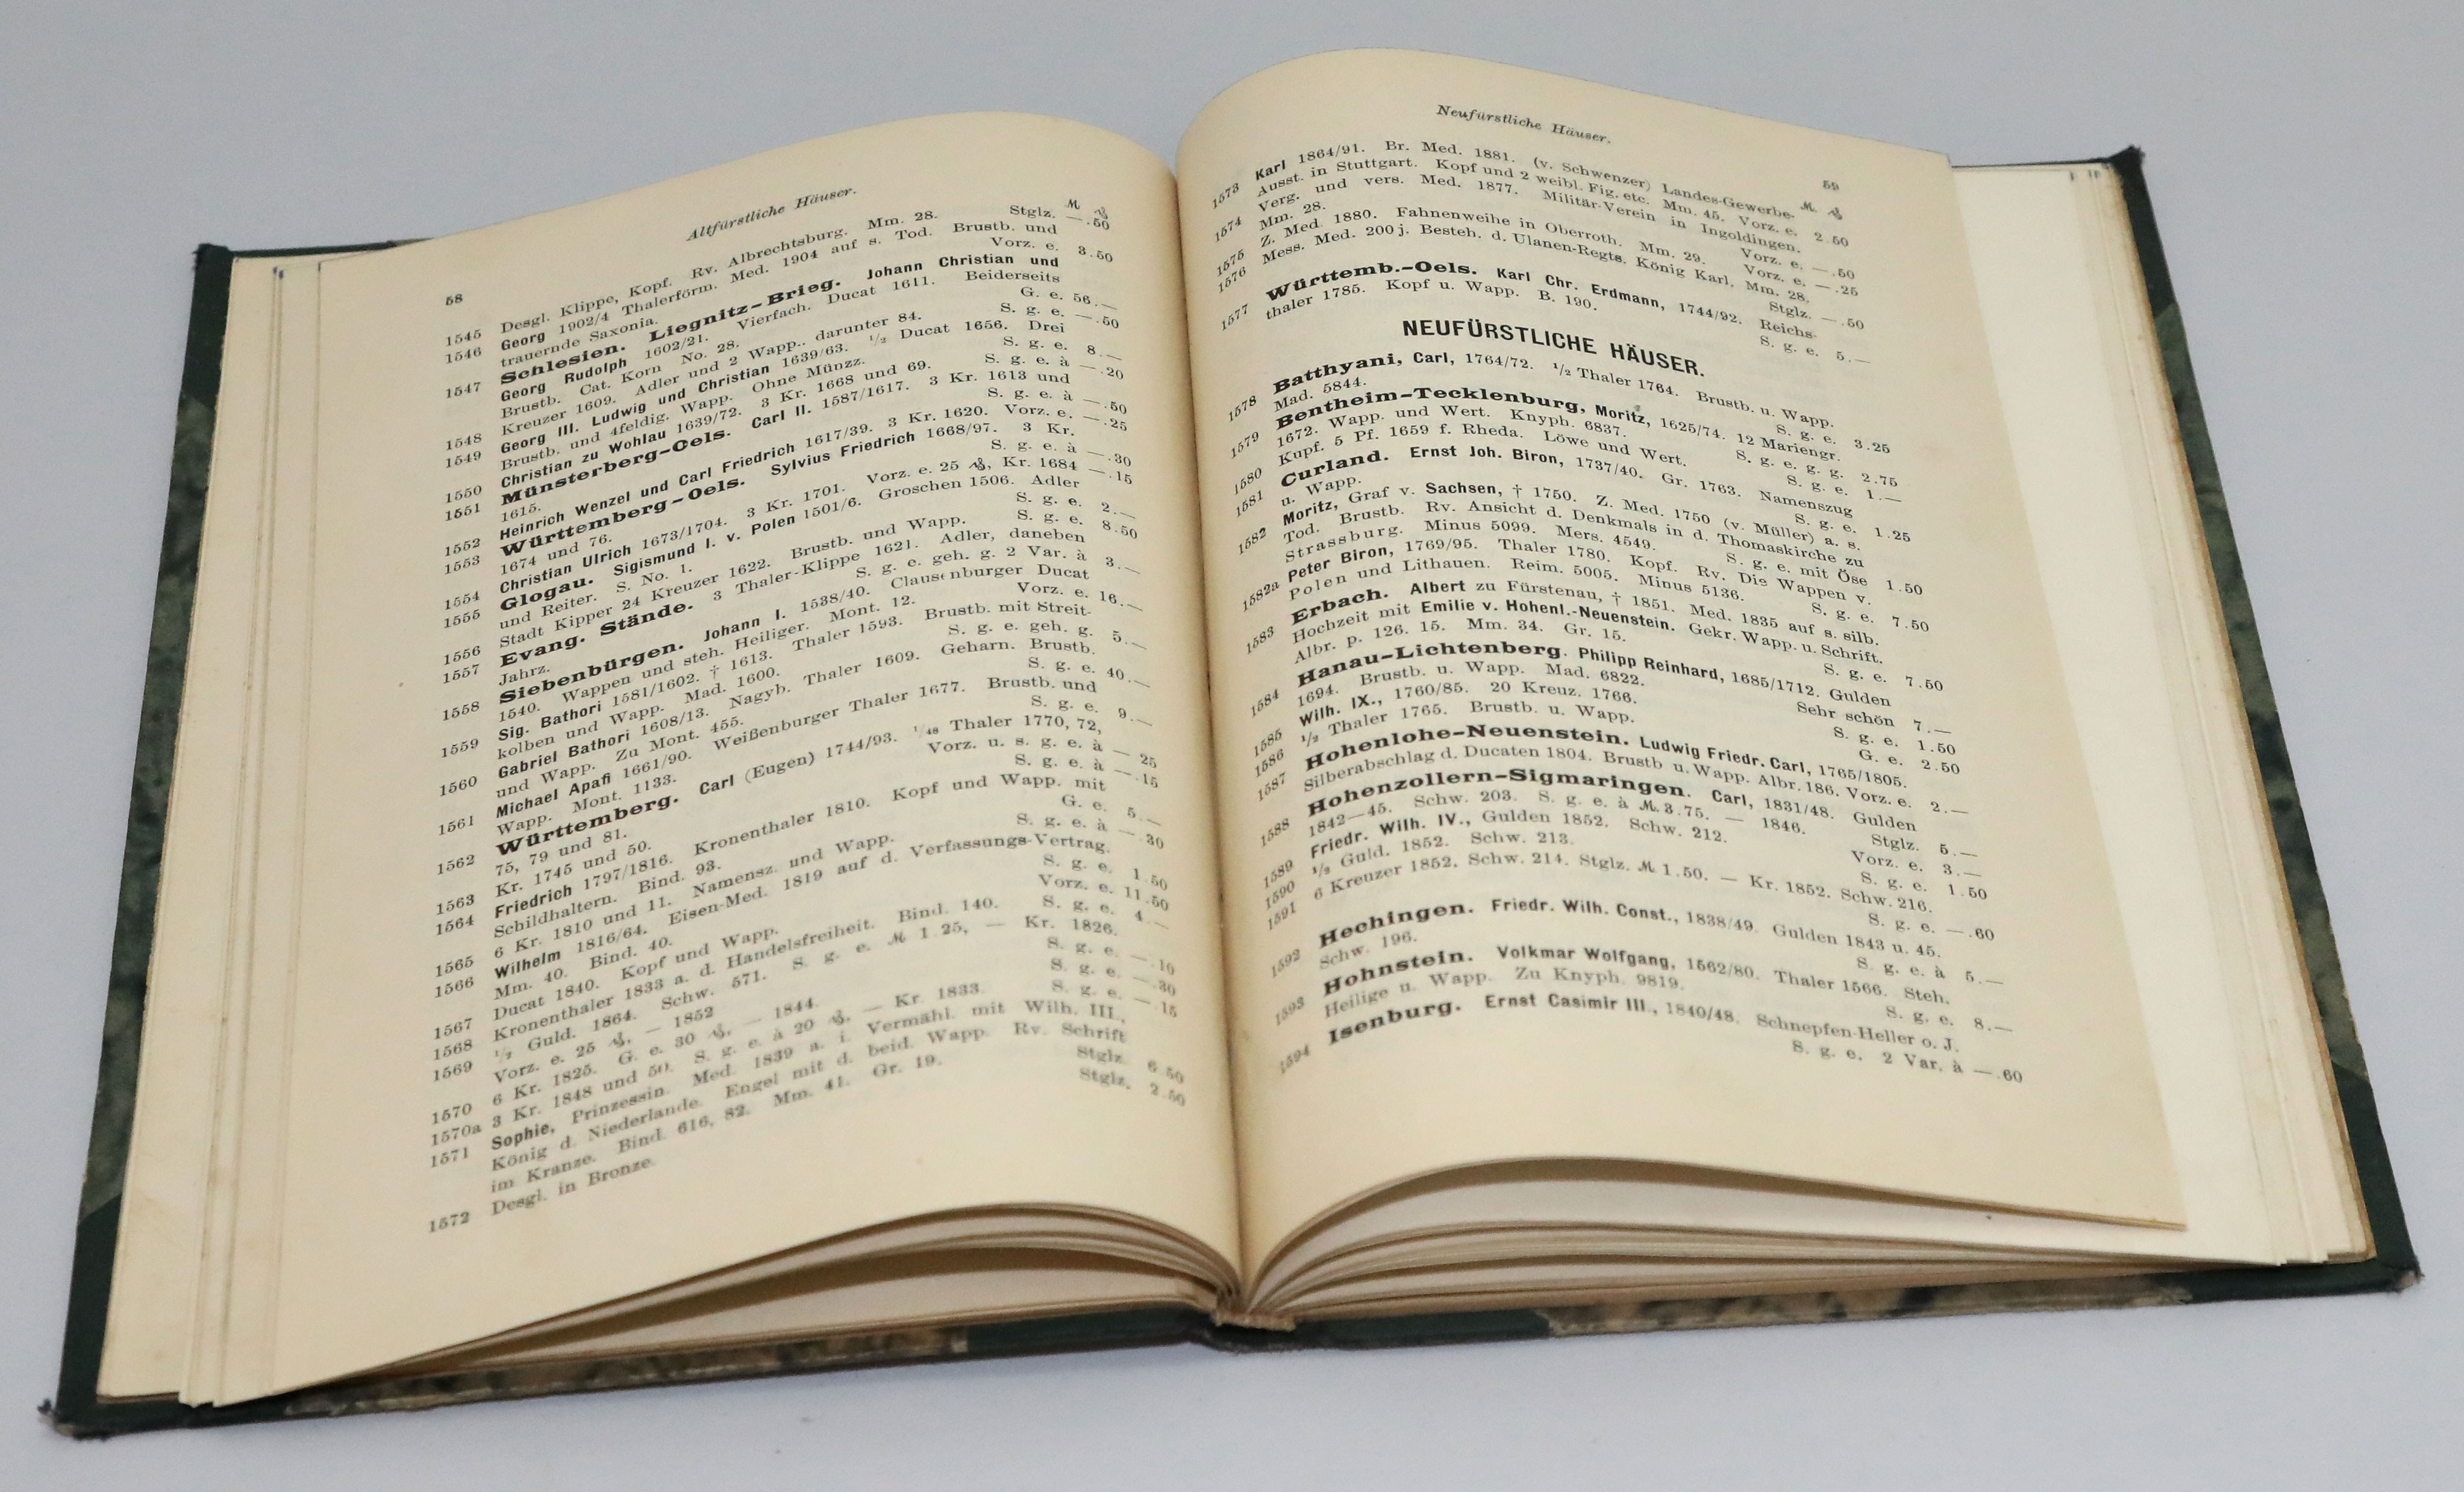 58
Altfürstliche Häuser.
M ₰
1545 Desgl. Klippe, Kopf. Rv. Albrechtsburg. Mm. 28. Stglz. —.50
1546 Georg 1902/4 Thalerförm. Med. 1904 auf s. Tod. Brustb. und
trauernde Saxonia. Vorz. e. 3.50
Schlesien. Liegnitz-Brieg. Johann Christian und
1547 Georg Rudolph 1602/21. Vierfach. Ducat 1611. Beiderseits
Brustb. Cat. Korn No. 28. G. e. 56.—
Kreuzer 1609. Adler und 2 Wapp., darunter 84. S. g. e. —.50
1548 Georg III. Ludwig und Christian 1639/63. ½ Ducat 1656. Drei
1549 Brustb. und 4feldig. Wapp. Ohne Münzz. S. g. e. 8.—
Christian zu Wohlau 1639/72. 3 Kr. 1668 und 69. S. g. e. à —.20
1550 Münsterberg-Oels. Carl II. 1587/1617. 3 Kr. 1613 und
1551 1615. S. g. e. à —.50
Heinrich Wenzel und Carl Friedrich 1617/39. 3 Kr. 1620. Vorz. e. —.25
1552 Württemberg-Oels. Sylvius Friedrich 1668/97. 3 Kr.
1553 1674 und 76. S. g. e. à —.30
Christian Ulrich 1673/1704. 3 Kr. 1701. Vorz. e. 25 ₰, Kr. 1684 —.15
1554 Glogau. Sigismund I. v. Polen 1501/6. Groschen 1506. Adler
1555 und Reiter. S. No. 1. S. g. e. 2.—
Stadt Kipper 24 Kreuzer 1622. Brustb. und Wapp. S. g. e. 8.50
1556 Evang. Stände. 3 Thaler-Klippe 1621. Adler, daneben
1557 Jahrz. S. g. e. geh. g. 2 Var. à 3.—
Siebenbürgen. Johann I. 1538/40. Clausenburger Ducat
1558 1540. Wappen und steh. Heiliger. Mont. 12. Vorz. e. 16.—
Sig. Bathori 1581/1602. † 1613. Thaler 1593. Brustb. mit Streit-
1559 kolben und Wapp. Mad. 1600. S. g. e. geh. g. 5.—
Gabriel Bathori 1608/13. Nagyb. Thaler 1609. Geharn. Brustb.
1560 und Wapp. Zu Mont. 455. S. g. e. 40.—
Michael Apafi 1661/90. Weißenburger Thaler 1677. Brustb. und
1561 Wapp. Mont. 1133. S. g. e. 9.—
Württemberg. Carl (Eugen) 1744/93. 1/48 Thaler 1770, 72,
1562 75, 79 und 81. Vorz. u. s. g. e. à —.25
Kr. 1745 und 50. S. g. e. à —.15
1563 Friedrich 1797/1816. Kronenthaler 1810. Kopf und Wapp. mit
1564 Schildhaltern. Bind. 93. G. e. 5.—
6 Kr. 1810 und 11. Namensz. und Wapp. S. g. e. à —.30
1565 Wilhelm 1816/64. Eisen-Med. 1819 auf d. Verfassungs-Vertrag.
1566 Mm. 40. Bind. 40. S. g. e. 1.50
Ducat 1840. Kopf und Wapp. Vorz. e. 11.50
1567 Kronenthaler 1833 a. d. Handelsfreiheit. Bind. 140. S. g. e. 4.—
1568 ½ Guld. 1864. Schw. 571. S. g. e. M 1.25, — Kr. 1826.
1569 Vorz. e. 25 ₰, — 1852 S. g. e. —.10
6 Kr. 1825. G. e. 30 ₰, — 1844. S. g. e. —.30
1570 3 Kr. 1848 und 50. S. g. e. à 20 ₰, — Kr. 1833. S. g. e. —.15
1570a Sophie, Prinzessin. Med. 1839 a. i. Vermähl. mit Wilh. III.,
1571 König d. Niederlande. Engel mit d. beid. Wapp. Rv. Schrift
im Kranze. Bind. 616, 82. Mm. 41. Gr. 19. Stglz. 6.50
1572 Desgl. in Bronze. Stglz. 2.50
Neufürstliche Häuser.
59
M. ₰
1573 Karl 1864/91. Br. Med. 1881. (v. Schwenzer) Landes-Gewerbe-
Ausst. in Stuttgart. Kopf und 2 weibl. Fig. etc. Mm. 45. Vorz. e. 2.50
1574 Verg. und vers. Med. 1877. Militär-Verein in Ingoldingen.
Mm. 28. Vorz. e. —.50
1575 Z. Med. 1880. Fahnenweihe in Oberroth. Mm. 29. Vorz. e. —.25
1576 Mess. Med. 200j. Besteh. d. Ulanen-Regts. König Karl. Mm. 28.
Stglz. —.50
Württemb.-Oels. Karl Chr. Erdmann, 1744/92. Reichs-
1577 thaler 1785. Kopf u. Wapp. B. 190. S. g. e. 5.—
NEUFÜRSTLICHE HÄUSER.
Batthyani, Carl, 1764/72. ½ Thaler 1764. Brustb. u. Wapp.
1578 Mad. 5844. S. g. e. 3.25
Bentheim-Tecklenburg, Moritz, 1625/74. 12 Mariengr.
1579 1672. Wapp. und Wert. Knyph. 6837. S. g. e. g. g. 2.75
1580 Kupf. 5 Pf. 1659 f. Rheda. Löwe und Wert. S. g. e. 1.—
1581 Curland. Ernst Joh. Biron, 1737/40. Gr. 1763. Namenszug
u. Wapp. S. g. e. 1.25
1582 Moritz, Graf v. Sachsen, † 1750. Z. Med. 1750 (v. Müller) a. s.
Tod. Brustb. Rv. Ansicht d. Denkmals in d. Thomaskirche zu
Strassburg. Minus 5099. Mers. 4549. S. g. e. mit Öse 1.50
1582a Peter Biron, 1769/95. Thaler 1780. Kopf. Rv. Die Wappen v.
Polen und Lithauen. Reim. 5005. Minus 5136. S. g. e. 7.50
Erbach. Albert zu Fürstenau, † 1851. Med. 1835 auf s. silb.
1583 Hochzeit mit Emilie v. Hohenl.-Neuenstein. Gekr. Wapp. u. Schrift.
Albr. p. 126. 15. Mm. 34. Gr. 15. S. g. e. 7.50
Hanau-Lichtenberg. Philipp Reinhard, 1685/1712. Gulden
1584 1694. Brustb. u. Wapp. Mad. 6822. Sehr schön 7.—
1585 Wilh. IX., 1760/85. 20 Kreuz. 1766. S. g. e. 1.50
1586 ½ Thaler 1765. Brustb. u. Wapp. G. e. 2.50
Hohenlohe-Neuenstein. Ludwig Friedr. Carl, 1765/1805.
1587 Silberabschlag d. Ducaten 1804. Brustb u. Wapp. Albr. 186. Vorz. e. 2.—
Hohenzollern-Sigmaringen. Carl, 1831/48. Gulden
1588 1842—45. Schw. 203. S. g. e. à M. 3.75. — 1846. Stglz. 5.—
1589 Friedr. Wilh. IV., Gulden 1852. Schw. 212. Vorz. e. 3.—
1590 ½ Guld. 1852. Schw. 213. S. g. e. 1.50
1591 6 Kreuzer 1852. Schw. 214. Stglz. M 1.50. — Kr. 1852. Schw. 216.
S. g. e. —.60
Hechingen. Friedr. Wilh. Const., 1838/49. Gulden 1843 u. 45.
1592 Schw. 196. S. g. e. à 5.—
Hohnstein. Volkmar Wolfgang, 1562/80. Thaler 1566. Steh.
1593 Heilige u. Wapp. Zu Knyph. 9819. S. g. e. 8.—
Isenburg. Ernst Casimir III., 1840/48. Schnepfen-Heller o. J.
1594 S. g. e. 2 Var. à —.60